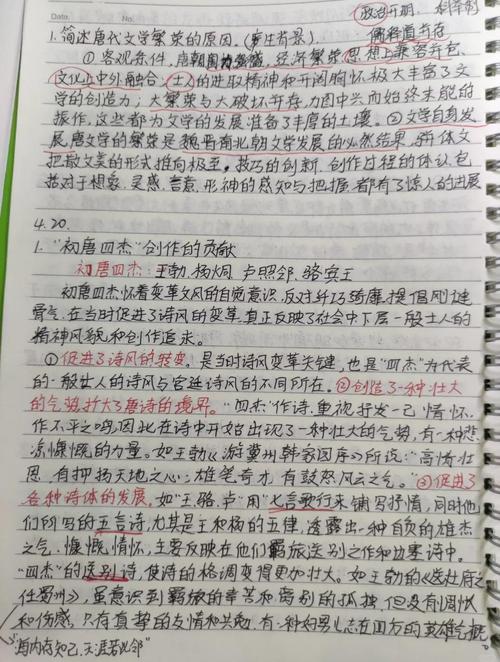 政治开明，科举制
Date. No. 儒释道并存
1. 简述唐代文学繁荣的原因。(产生背景)
① 客观条件，唐朝国力强盛，经济繁荣思想上兼容并包、
文化上中外融合；士人的进取精神和开阔胸怀极大丰富了文
学的创造力；大繁荣与大破坏并存，力图中兴而始终未能的
振作，这些都为文学的发展准备了丰厚的土壤。②文学自身发
展，唐文学的繁荣是魏晋南北朝文学发展的必然结果，骈体文
把散文美的形式推向极至，技巧的创新，创作过程的体认，包
括对于想象、灵感、言意、形神的感知与把握，都有了惊人的进展
4.20.
1. "初唐四杰"创作的贡献
初唐四杰：王勃、杨炯、卢照邻、骆宾王
初唐四杰怀着变革文风的自觉意识，反对纤巧绮靡，提倡刚健
骨气，在当时促进了诗风的变革，真正反映了社会中下层一般士人的
精神风貌和创作追求。
①促进了诗风的转变。是当时诗风变革关键，也是"四杰"为代表
的一般士人的诗风与宫廷诗风的不同所在。②创造了一种壮大
的气势，扩大了唐诗的境界。"四杰"作诗，重视抒发一己情怀，
作不平之鸣，因此在诗中开始出现了一种壮大的气势，有一种悲
凉慷慨的力量。如王勃《游冀州韩家园序》所说："高情壮
思，有抑扬天地之心；雄笔奇才，有鼓怒风云之气。"③促进了
各种诗体的发展。如"王、骆、卢"用"七言歌行来铺写抒情，同时他
们所写的五言诗，尤其是王和杨的五律，透露出一种自负的雄杰
之气、慷慨情怀，主要反映在他们羁旅送别之作和边塞诗中。
"四杰"的送别诗，使诗的格调变得更加壮大。如王勃的《送杜少府之
任蜀州》，虽意识到羁旅的辛苦和离别的孤独，但没有惆怅
和伤感，只存真挚的友情和共勉，有一种好男儿志在四方的英雄气概。
"海内存知己，天涯若比邻"